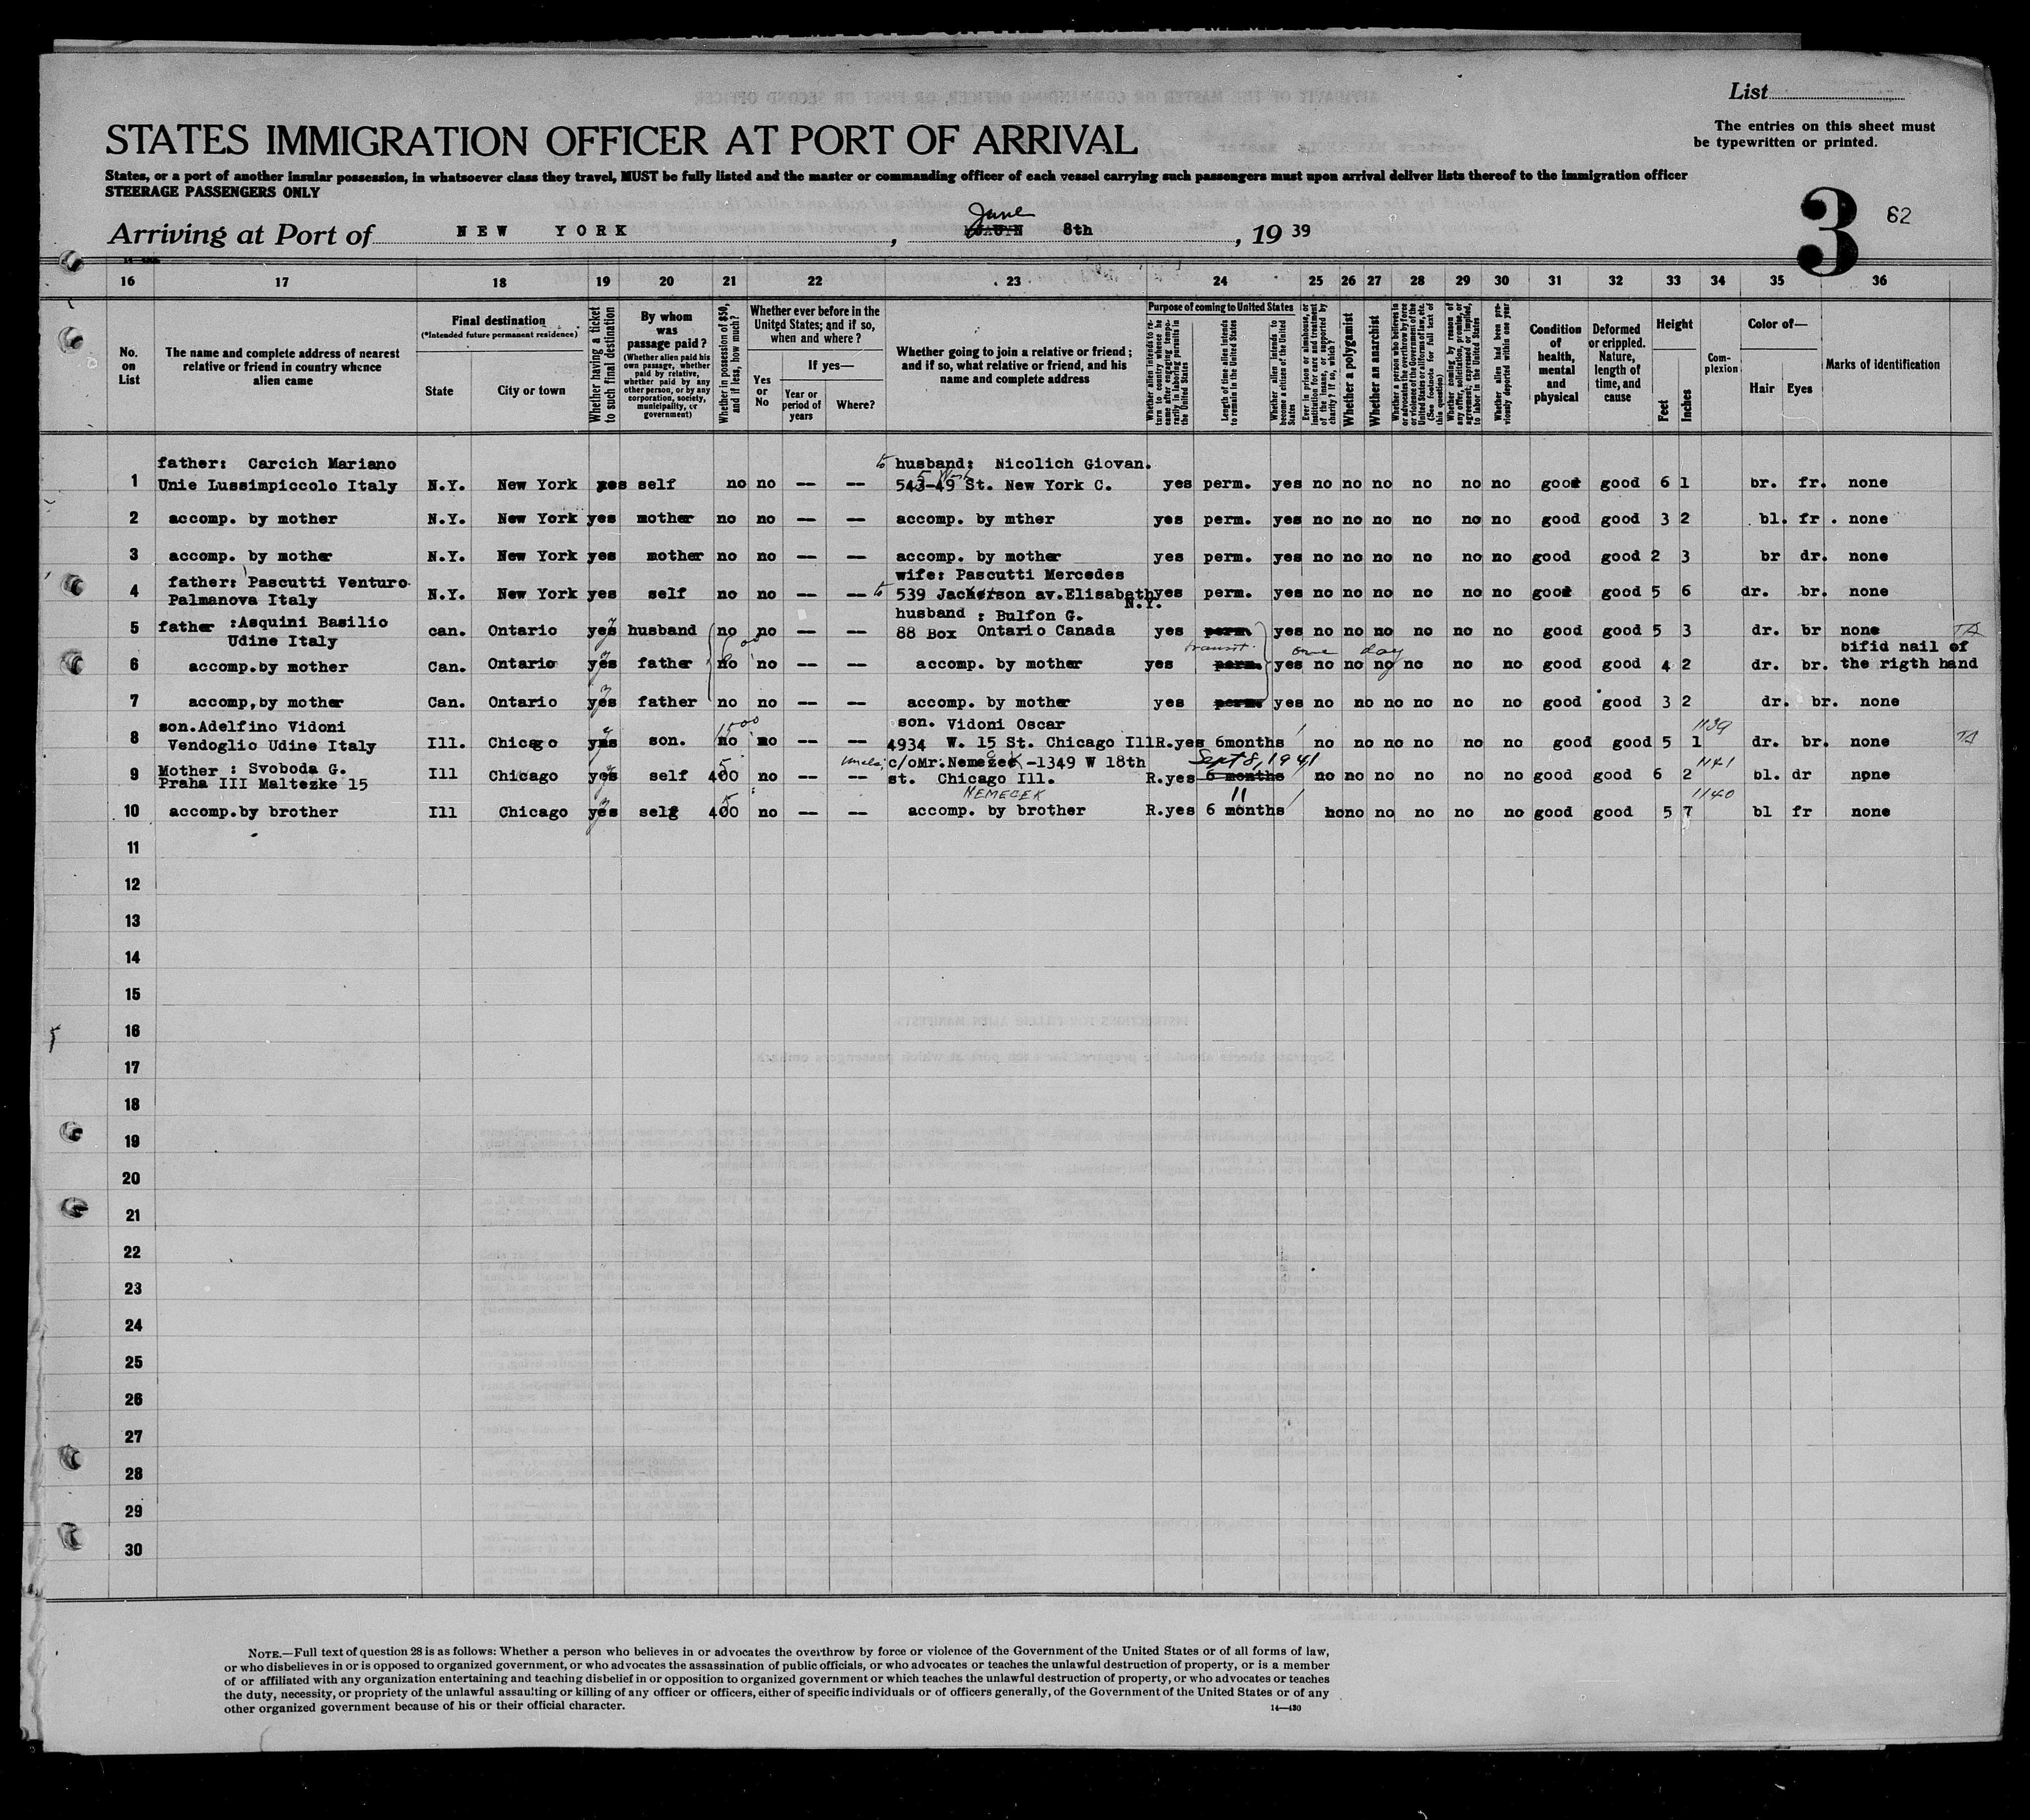 List
The entries on this sheet must
be typewritten or printed.
STATES IMMIGRATION OFFICER AT PORT OF ARRIVAL
States, or a port of another insular possession, in whatsoever class they travel, MUST be fully listed and the master or commanding officer of each vessel carrying such passengers must upon arrival deliver lists thereof to the immigration officer
STEERAGE PASSENGERS ONLY
3 62
June
Arriving at Port of NEW YORK, 8th, 19 39
16 17 18 19 20 21 22 23 24 25 26 27 28 29 30 31 32 33 34 35 36
No. on List
The name and complete address of nearest relative or friend in country whence alien came
Final destination
(*Intended future permanent residence)
State
City or town
Whether having a ticket to such final destination
By whom was passage paid?
(Whether alien paid his own passage, whether paid by relative, whether paid by any other person, or by any corporation, society, municipality, or government)
Whether in possession of $50, and if less, how much?
Whether ever before in the United States; and if so, when and where?
Yes or No
If yes—
Year or period of years
Where?
Whether going to join a relative or friend; and if so, what relative or friend, and his name and complete address
Purpose of coming to United States
Whether alien intends to return to country whence he came after engaging temporarily in laboring pursuits in the United States
Length of time alien intends to remain in the United States
Whether alien intends to become a citizen of the United States
Ever in prison or almshouse, or institution for care and treatment of the insane, or supported by charity? If so, which?
Whether a polygamist
Whether an anarchist
Whether a person who believes in or advocates the overthrow by force or violence of the Government of the United States or all forms of law, etc. (See footnote for full text of this question)
Whether coming by reason of any offer, solicitation, promise, or agreement, expressed or implied, to labor in the United States
Whether alien had been previously deported within one year
Condition of health, mental and physical
Deformed or crippled. Nature, length of time, and cause
Height
Feet
Inches
Complexion
Color of—
Hair
Eyes
Marks of identification
father: Carcich Mariano to husband: Nicolich Giovan.
1 Unie Lussimpiccolo Italy N.Y. New York yes self no no -- -- 543-49 St. New York C. yes perm. yes no no no no no no good good 6 1 br. fr. none
2 accomp. by mother N.Y. New York yes mother no no -- -- accomp. by mther yes perm. yes no no no no no no good good 3 2 bl. fr . none
3 accomp. by mother N.Y. New York yes mother no no -- -- accomp. by mother yes perm. yes no no no no no no good good 2 3 br dr. none
father: Pascutti Venturo wife: Pascutti Mercedes
4 Palmanova Italy N.Y. New York yes self no no -- -- to 539 Jackerson av.Elisabeth yes perm. yes no no no no no no good good 5 6 dr. br. none
N.Y.
father :Asquini Basilio husband : Bulfon G.
5 Udine Italy can. Ontario yes husband no no -- -- 88 Box Ontario Canada yes perm. yes no no no no no no good good 5 3 dr. br none TA
transit. one day bifid nail of
6 accomp.by mother Can. Ontario yes father no no -- -- accomp. by mother yes perm. yes no no no no no no good good 4 2 dr. br. the rigth hand
7 accomp,by mother Can. Ontario yes father no no -- -- accomp. by mother yes perm. yes no no no no no no good good 3 2 dr. br. none
son.Adelfino Vidoni son. Vidoni Oscar 1139
8 Vendoglio Udine Italy Ill. Chicago yes son. no no -- -- 4934 W. 15 St. Chicago Ill R.yes 6months no no no no no no good good 5 1 dr. br. none TA
Mother : Svoboda G. uncle; c/oMr.Nemecek -1349 W 18th Sept 8, 1941 1141
9 Praha III Maltezke 15 Ill Chicago yes self 400 no -- -- st. Chicago Ill. R.yes 6 months no no no no no no good good 6 2 bl. dr none
NEMECEK 11 1140
10 accomp.by brother Ill Chicago yes self 400 no -- -- accomp. by brother R.yes 6 months no no no no no no good good 5 7 bl fr none
11
12
13
14
15
16
17
18
19
20
21
22
23
24
25
26
27
28
29
30
NOTE.—Full text of question 28 is as follows: Whether a person who believes in or advocates the overthrow by force or violence of the Government of the United States or of all forms of law,
or who disbelieves in or is opposed to organized government, or who advocates the assassination of public officials, or who advocates or teaches the unlawful destruction of property, or is a member
of or affiliated with any organization entertaining and teaching disbelief in or opposition to organized government or which teaches the unlawful destruction of property, or who advocates or teaches
the duty, necessity, or propriety of the unlawful assaulting or killing of any officer or officers, either of specific individuals or of officers generally, of the Government of the United States or of any
other organized government because of his or their official character.
14—430